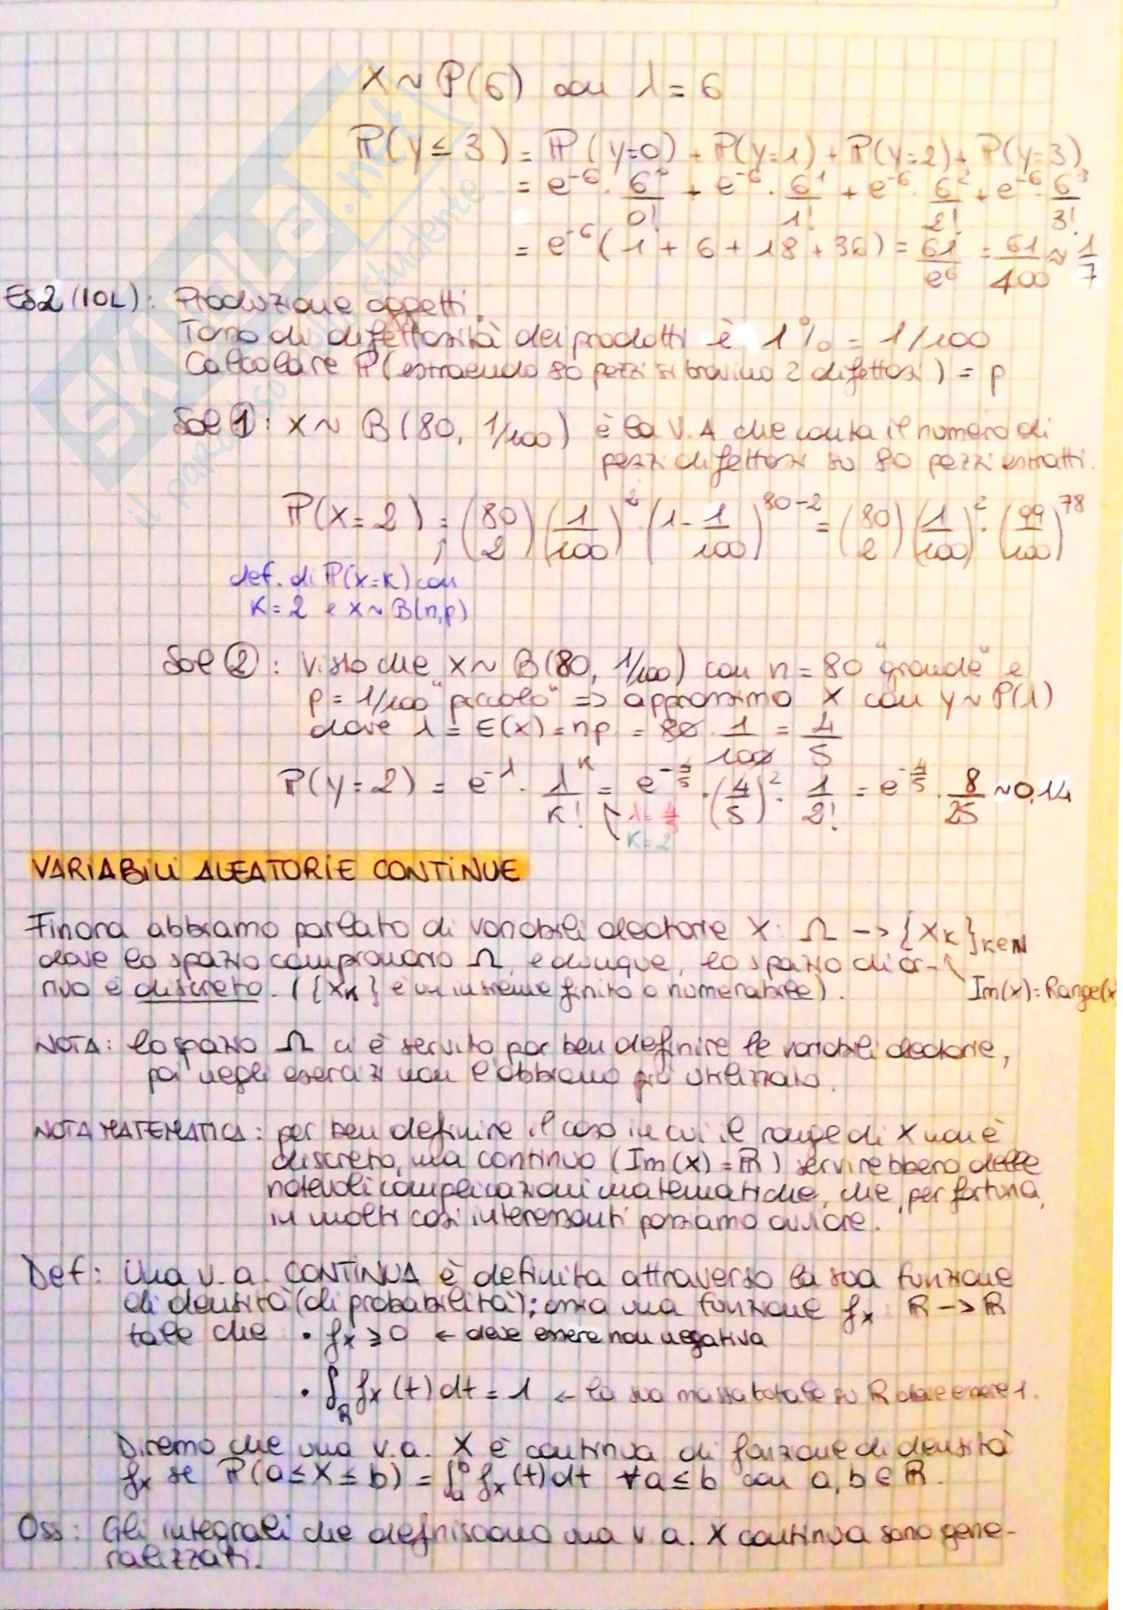 X ~ P(6) con λ = 6
P(Y ≤ 3) = P(Y=0) + P(Y=1) + P(Y=2) + P(Y=3)
= e^-6 · 6^0/0! + e^-6 · 6^1/1! + e^-6 · 6^2/2! + e^-6 · 6^3/3!
= e^-6 (1 + 6 + 18 + 36) = 61/e^6 = 61/400 ≈ 1/7
ES2 (IOL): Produzione oggetti.
Tasso di difettosità dei prodotti è 1% = 1/100
Calcolare P(estraendo 80 pezzi si trovino 2 difettosi) = p
Sol ①: X ~ B(80, 1/100) è la V.A che conta il numero di
pezzi difettosi su 80 pezzi estratti.
P(X=2) = (80 2) (1/100)^2 · (1 - 1/100)^80-2 = (80 2) (1/100)^2 · (99/100)^78
def. di P(X=K) con
K=2 e X~B(n,p)
Sol ②: Visto che X ~ B(80, 1/100) con n = 80 "grande" e
p = 1/100 "piccolo" => approssimo X con Y ~ P(λ)
dove λ = E(X) = np = 80 · 1/100 = 4/5
P(Y=2) = e^-λ · λ^K/K! = e^-4/5 · (4/5)^2 · 1/2! = e^-4/5 · 8/25 ~ 0,14
λ=4/5
K=2
VARIABILI ALEATORIE CONTINUE
Finora abbiamo parlato di variabili aleatorie X: Ω -> {XK}K∈N
dove lo spazio campionario Ω, e dunque, lo spazio di ar-
rivo è discreto. ({XK} è un insieme finito o numerabile).
Im(X) = Range(x
NOTA: lo spazio Ω ci è servito per ben definire le variabili aleatorie,
poi negli esercizi non l'abbiamo più utilizzato.
NOTA MATEMATICA: per ben definire il caso in cui il range di X non è
discreto, ma continuo (Im(X) = R) servirebbero delle
notevoli complicazioni matematiche, che, per fortuna,
in molti casi interessanti possiamo ovviare.
Def: Una v.a. CONTINUA è definita attraverso la sua funzione
di densità (di probabilità); ossia una funzione fx: R -> R
tale che • fx ≥ 0 ← deve essere non negativa
• ∫R fx(t) dt = 1 ← la sua massa totale su R deve essere 1.
Diremo che una v.a. X è continua di funzione di densità
fx se P(a ≤ X ≤ b) = ∫a^b fx(t) dt ∀ a ≤ b con a, b ∈ R.
Oss: Gli integrali che definiscono una v.a. X continua sono gene-
ralizzati.
SKUOLA.net
il paradiso dello studente